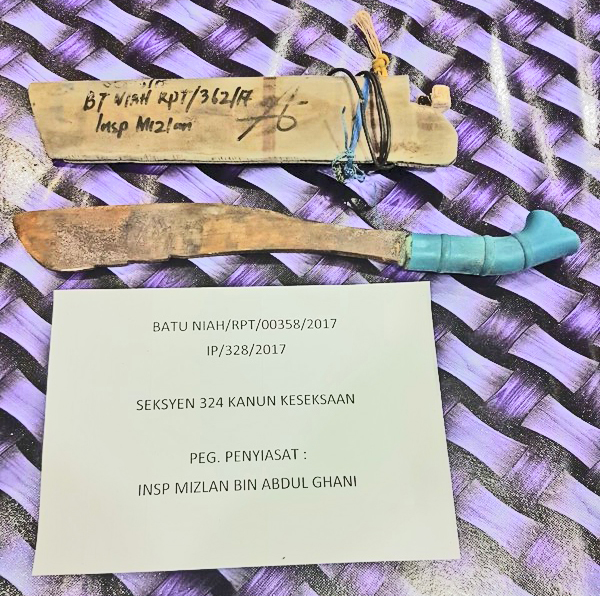 BT NIAH RPT/362/17
Insp Mizlan
76
BATU NIAH/RPT/00358/2017
IP/328/2017
SEKSYEN 324 KANUN KESEKSAAN
PEG. PENYIASAT :
INSP MIZLAN BIN ABDUL GHANI